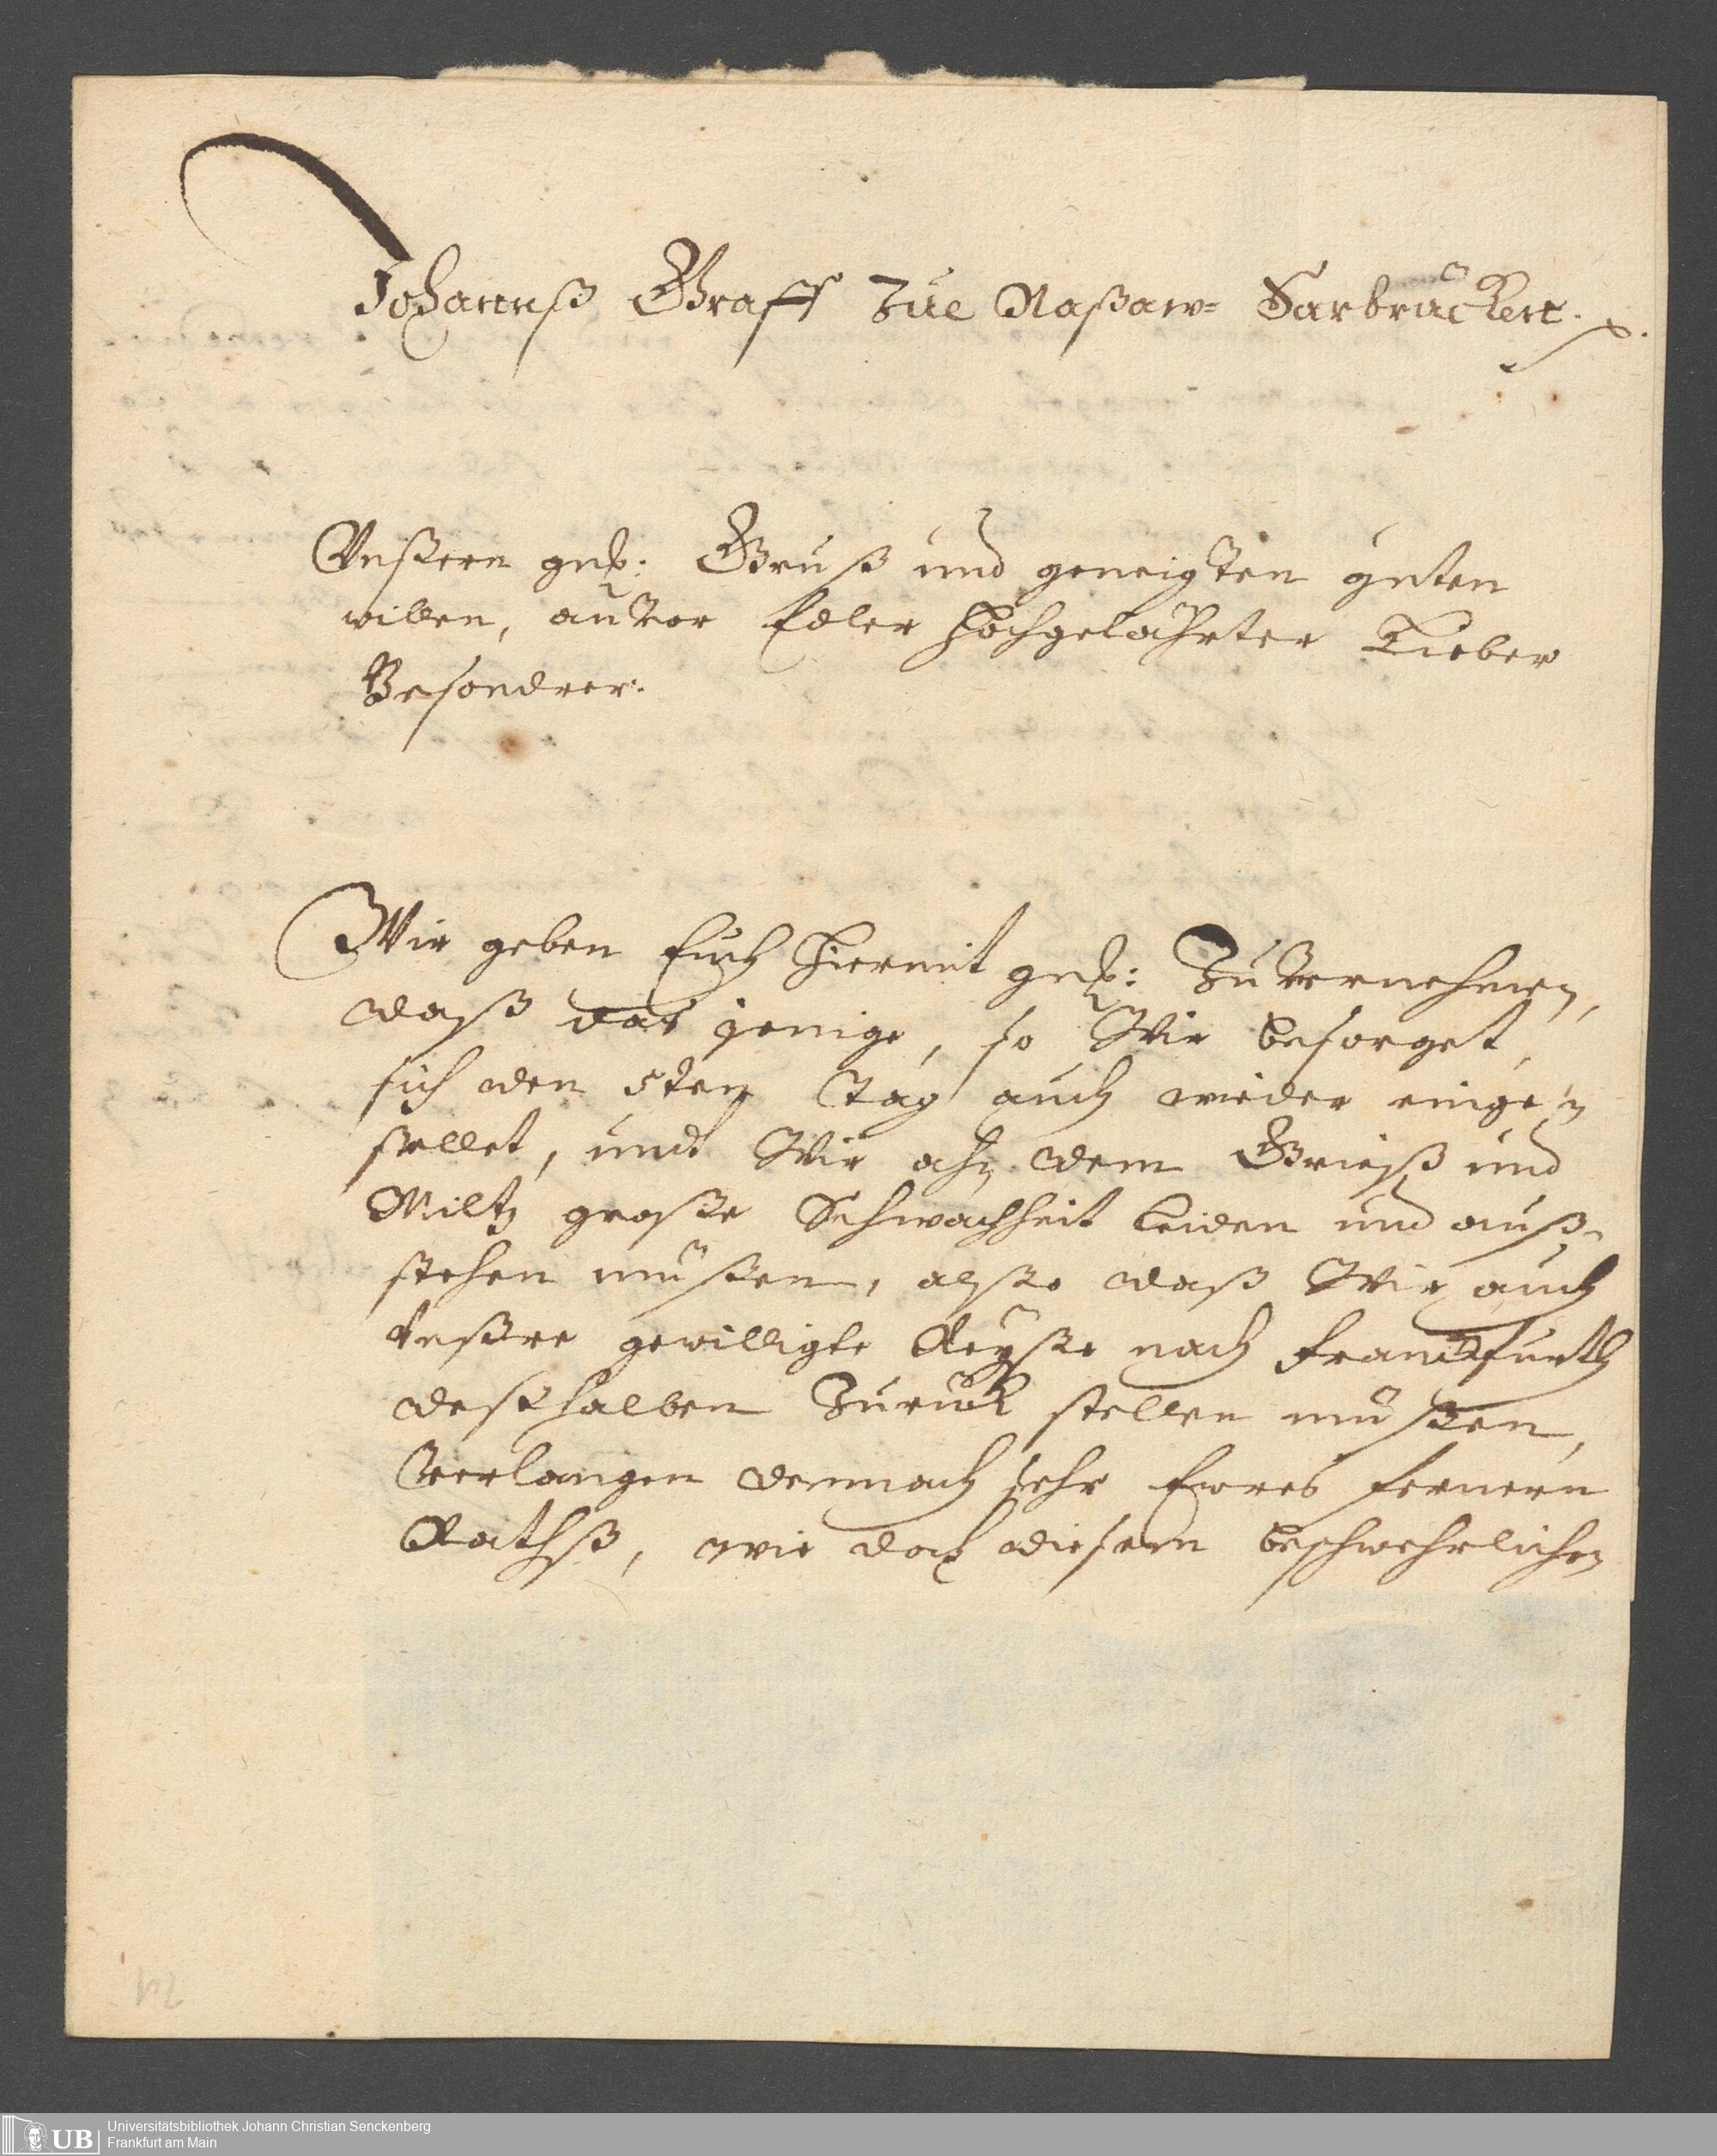 Johanneß Graff Zue Naßaw= Sarbrücken. p.
Vnßern gnd: Gruß und geneigten guten
willen, auvor Edler Hochgelährter Lieber
Besondrer.
Wir geben Euch hiermit gnd: Zuvernehmen,
daß das jenige, so Wir besorget,
sich den 5ten Tag auch wieder einge-
stellet, undt Wir ahn dem Grieß und
Miltz große Schwachheit leiden und auß-
stehen müßen, alßo daß Wir auch
vnßre gewilligte Reyße nach Franckfurth
deßhalben Zurück stellen müßen,
Verlangen demnach sehr Ewres fernern
Rathß, wie doch diesem beschwehrlichen
24
Universitätsbibliothek Johann Christian Senckenberg
UB
Frankfurt am Main